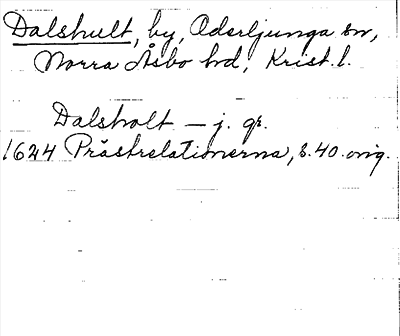 Dalshult, by, Oderljunga sn,
Norra Åsbo hd, Krist. l.
Dalsholt — j. gr.
1624 Prästrelationerna, s. 40. orig.